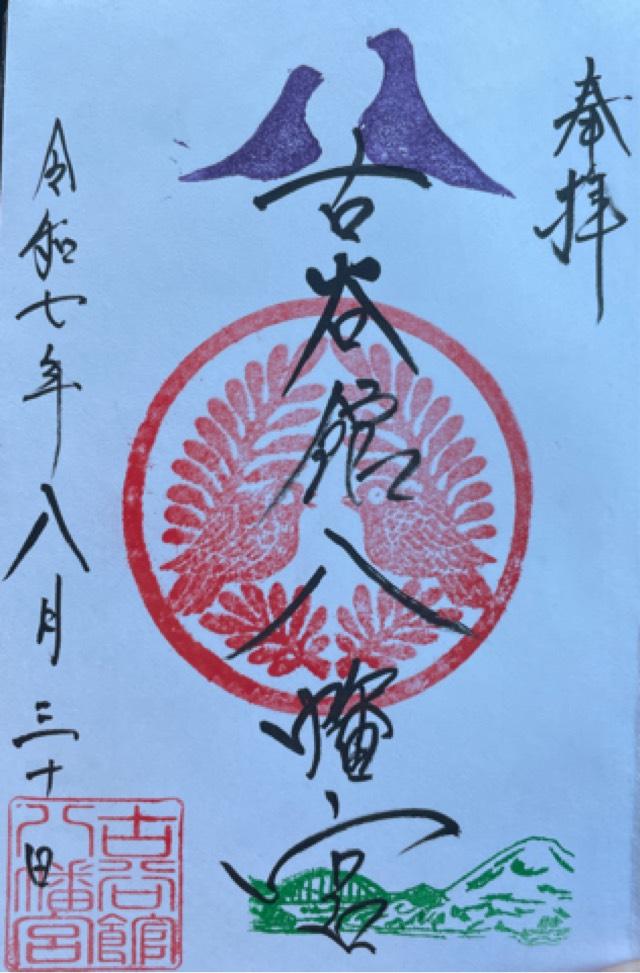 奉拝
古谷館八幡宮
令和七年八月三十日
古谷館
八幡宮